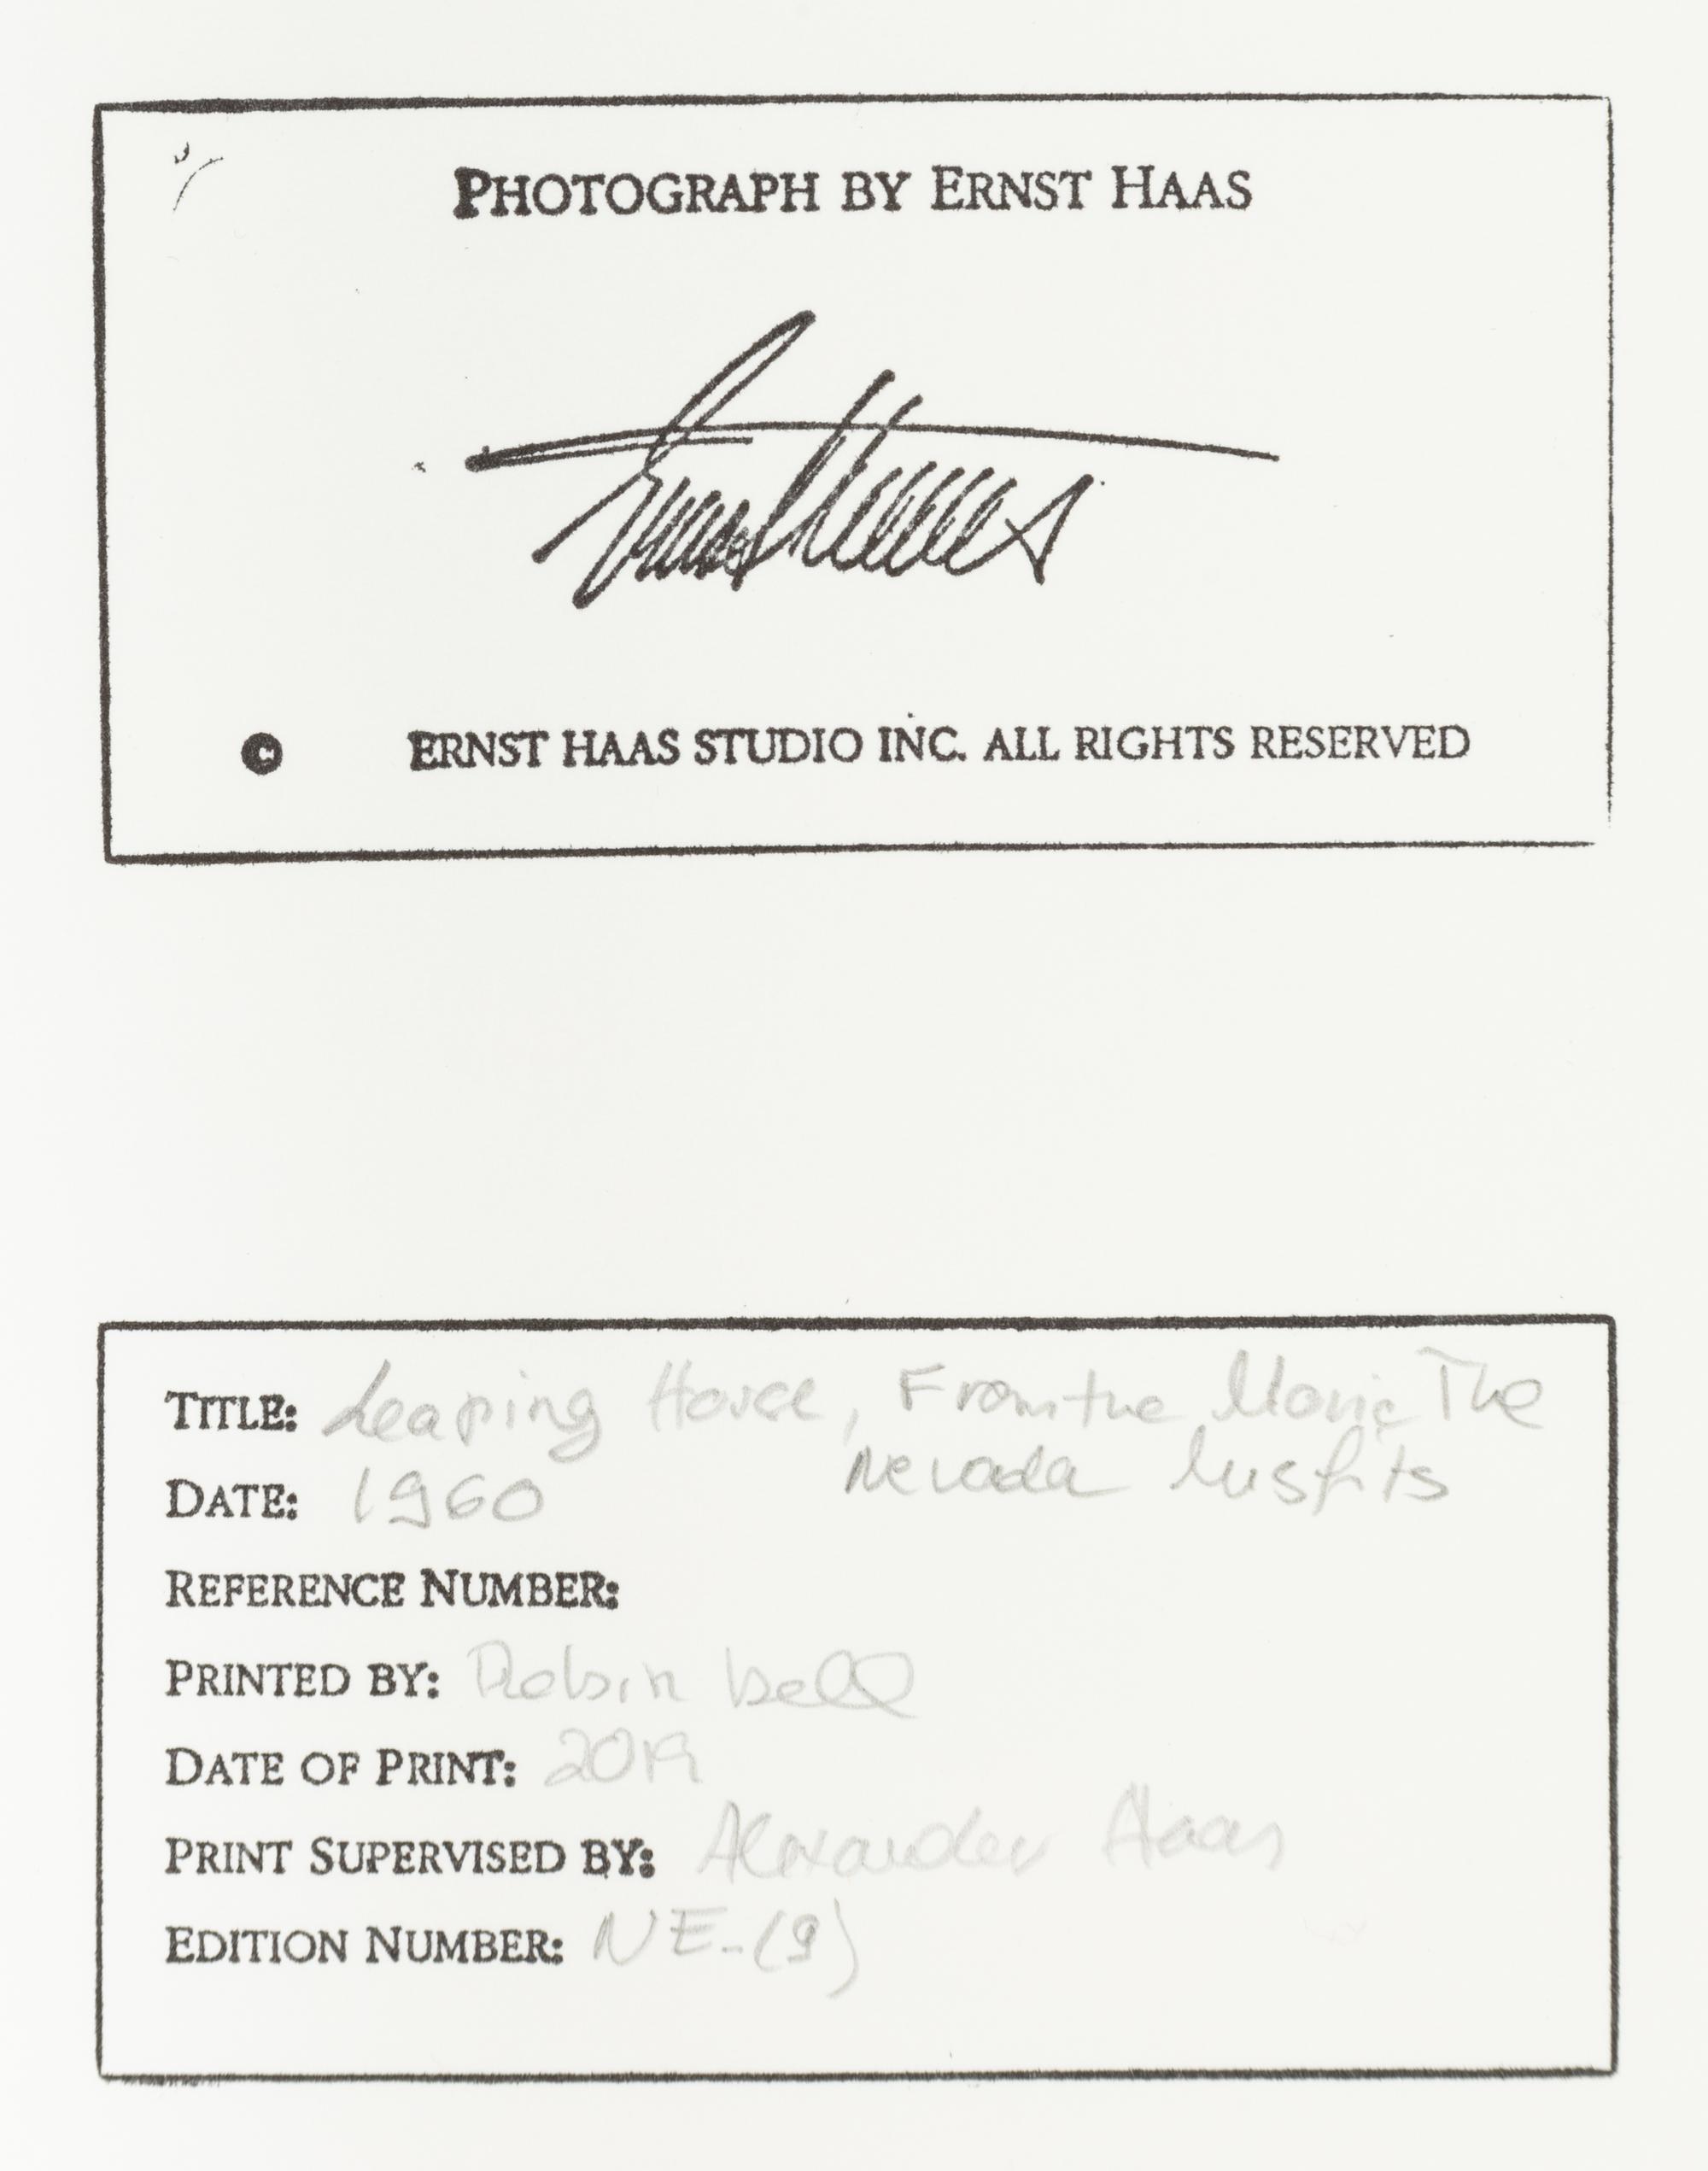 PHOTOGRAPH BY ERNST HAAS
Ernst Haas
© ERNST HAAS STUDIO INC. ALL RIGHTS RESERVED
TITLE: Leaping Horse, From the Movie The
Nevada Misfits
DATE: 1960
REFERENCE NUMBER:
PRINTED BY: Robin Bell
DATE OF PRINT: 2019
PRINT SUPERVISED BY: Alexander Haas
EDITION NUMBER: NE-(9)